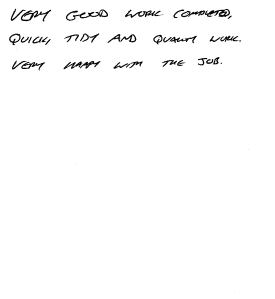 VERY GOOD WORK COMPLETED,
QUICK, TIDY AND QUALITY WORK.
VERY HAPPY WITH THE JOB.